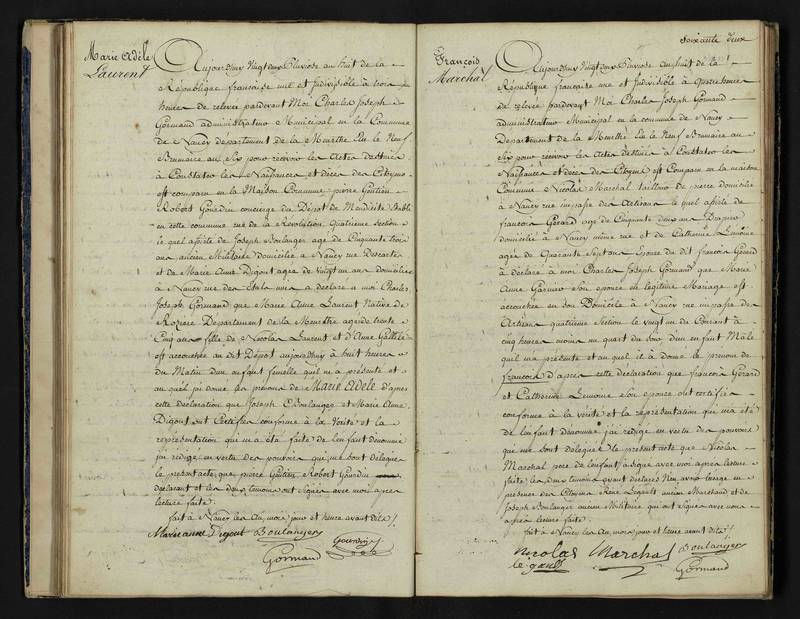 Marie Adèle
Laurent
Aujourd'huy Vingt deux Pluviose an huit de la
République française une et Indivisible à trois
heures de relevée pardevant Moi Charles Joseph
Gormand administrateur Municipal en la Commune
de Nancy departement de la Meurthe Elu le Neuf
Brumaire an Six pour recevoir les Actes destinés
à Constater les Naissances et décès des Citoyens
est comparu en la Maison Commune pierre
Robert Gourdin concierge du Dépot de Mendicité Etabli
en cette commune rue de la Révolution, quatrieme section
le quel assisté de Joseph Boulanger agé de Cinquante trois
ans ancien Militaire domicilié a Nancy rue Descartes
et de Marie Anne Digout agée de Vingt un ans domiciliée
à Nancy rue des Etats unis a déclaré a moi Charles
Joseph Gormand que Marie Anne Laurent Native de
Roziere Département de la Meurthe agée de trente
Cinq ans fille de Nicolas Laurent et d'Anne
est accouchée au dit Dépot aujourdhuy à huit heures
du Matin d'un enfant femelle quil m'a présenté et
au quel jai donné les prénoms de Marie Adele d'apres
cette declaration que Joseph Boulanger et Marie Anne
Digout ont Certifiée conforme à la Vérité et la
représentation qui m'a été faite de l'enfant denommé
jai rédigé en vertu des pouvoirs qui me sont délégués
le present acte, que pierre Robert Gourdin
declarant et les deux temoins ont signés avec moi apres
lecture faite.
fait à Nancy les An, mois, jour et heure avant dits /.
Marie anne Digout Boulanger Gourdin
Gormand
soixante deux
François
Marchal
Aujourd'huy Vingt deux Pluviose an huit de la
République française une et Indivisible à quatre heures
de relevée pardevant Moi Charles Joseph Gormand
administrateur Municipal en la commune de Nancy
Departement de la Meurthe Elu le Neuf Brumaire an
Six pour recevoir les Actes destinés à Constater les
Naissances et décès des Citoyens est Comparu en la maison
Commune Nicolas Marchal tailleur de pierre domicilié
à Nancy rue impasse des Artisans le quel assisté de
francois Gerard agé de Cinquante deux ans Drapier
domicilié à Nancy même rue et de Catherine Lemoine
agée de Quarante Sept ans Epouse du dit françois Gerard
à déclaré à moi Charles Joseph Gormand que Marie
Anne Garnier son épouse en légitime Mariage est
accouchée en son Domicile à Nancy rue impasse des
Artisans quatrieme Section le Vingt un du Courant à
cinq heures moins un quart du soir d'un enfant Male
quil m'a présenté et au quel il à donné le prenom de
francois d'apres cette declaration que francois Gerard
et Catherine Lemoine son épouse ont certifiée
conforme à la vérité et la représentation qui m'a été
de l'enfant dénommé jai redigé en vertu des pouvoirs
qui me sont délégués le present acte que Nicolas
Marchal pere de l'enfant à signé avec moi apres lecture
faite les deux temoins ayant declarés n'en avoir l'usage en
presence des Citoyens René Legault ancien Marchand et
Joseph Boulanger ancien Militaire qui ont signés avec nous
apres lecture faite.
fait à Nancy les An, mois jour et heure avant dits /.
Nicolas Marchal Boulanger
le gault Gormand